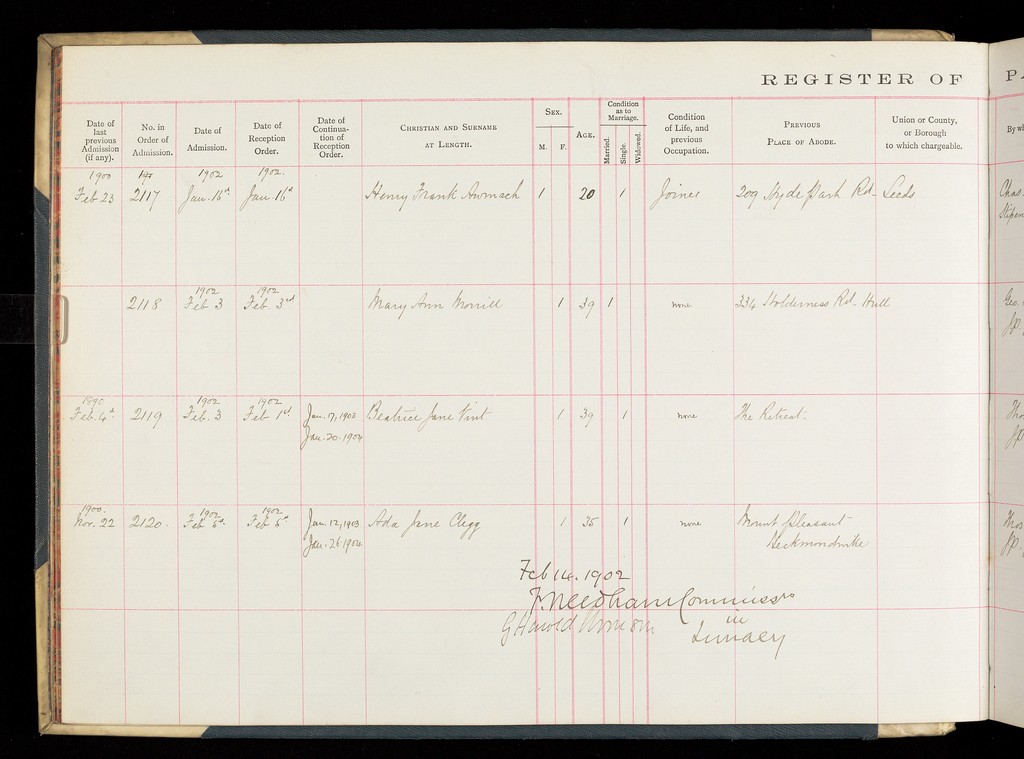 REGISTER OF
Date of last previous Admission (if any).
No. in Order of Admission.
Date of Admission.
Date of Reception Order.
Date of Continuation of Reception Order.
Christian and Surname at Length.
Sex.
M.
F.
Age.
Condition as to Marriage.
Married.
Single.
Widowed.
Condition of Life, and previous Occupation.
Previous Place of Abode.
Union or County, or Borough to which chargeable.
1900 1902 1902.
Feb 23 2117 Jan. 16th Jan. 16th Henry Frank 1 20 1 Joiner 209 Hyde Park Rd- Leeds
1902 1902
2118 Feb 3 Feb. 3rd Mary Ann Morrill 1 39 1 none 234 Holderness Rd- Hull
1890 1902 1902
Feb. 4th 2119 Feb. 3 Feb 1st Jan. 7, 1903 Beatrice Jane Vint 1 39 1 none The Retreat.
Jan. 20. 1904
1900. 1902 1902
Nov. 22 2120. Feb 5th Feb 5th Jan. 12, 1903 Ada Jane Clegg 1 35 1 none Mount Pleasant
Jan. 26. 1904 Heckmondwike
Feb 14. 1902
F. Needham Commissrs
G Harold in
Lunacy